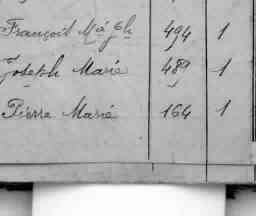 François M^a J^ph 494 1
Joseph Marie 489 1
Pierre Marie 164 1